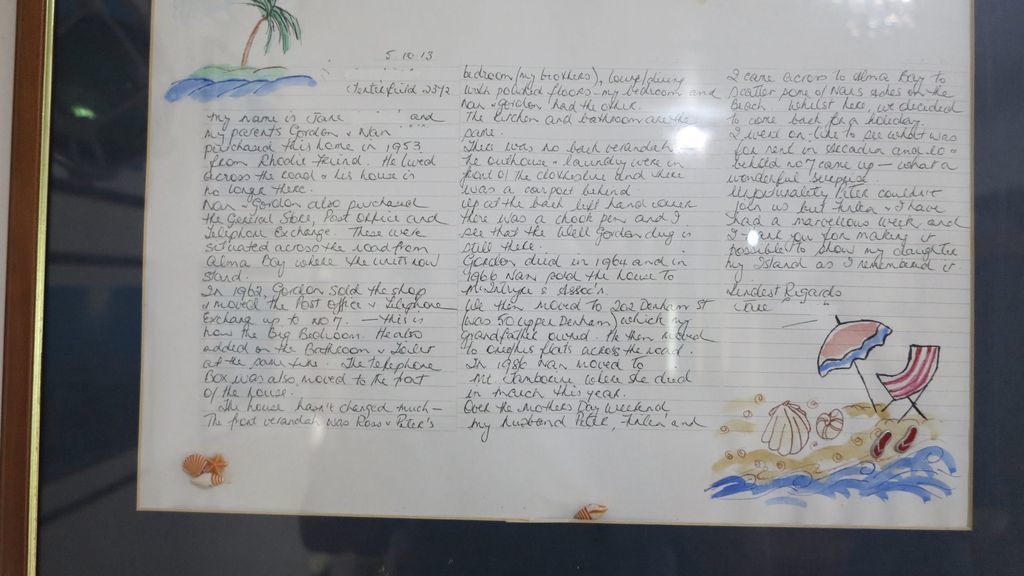 5.10.13
Tenterfield 2372
My name is Jane and
my parents Gordon & Nan
purchased this home in 1953
from Rhodie Friend. He lived
across the road & his house is
no longer there.
Nan & Gordon also purchased
the General Store, Post Office and
Telephone Exchange. These were
situated across the road from
Alma Bay where the units now
stand.
In 1962 Gordon sold the shop
& moved the Post Office & Telephone
Exchange up to No 7. — this is
now the Big Bedroom. He also
added on the Bathroom & Toilet
at the same time. The telephone
Box was also moved to the front
of the house.
The house hasn't changed much —
The front verandah was Ross & Peter's
bedroom (my brothers), lounge/dining
with polished floors, my bedroom and
Nan & Gordon had the other.
The kitchen and bathroom are the
same.
There was no back verandah
the outhouse & laundry were in
front of the clothesline and there
was a carport behind
Up at the back left hand corner
there was a chook pen and I
see that the well Gordon dug is
still there.
Gordon died in 1964 and in
1966 Nan sold the house to
McIntyre & Assoc's.
We then moved to 202 Denham St
(was 50 upper Denham) which my
Grandfather owned. He then moved
to flats across the road.
In 1986 Nan moved to
Mt Tamborine where she died
in March this year.
Over the Mothers Day weekend
my husband Peter, and
I came across to Alma Bay to
scatter some of Nan's ashes on the
beach. Whilst here, we decided
to come back for a holiday.
I went on-line to see what was
for rent in Arcadia and lo &
behold no 7 came up — what a
wonderful surprise.
Unfortunately Peter couldn't
join us but & I have
had a marvellous week and
I thank you for making it
possible to show my daughter
my Island as I remembered it
Kindest Regards
Jane